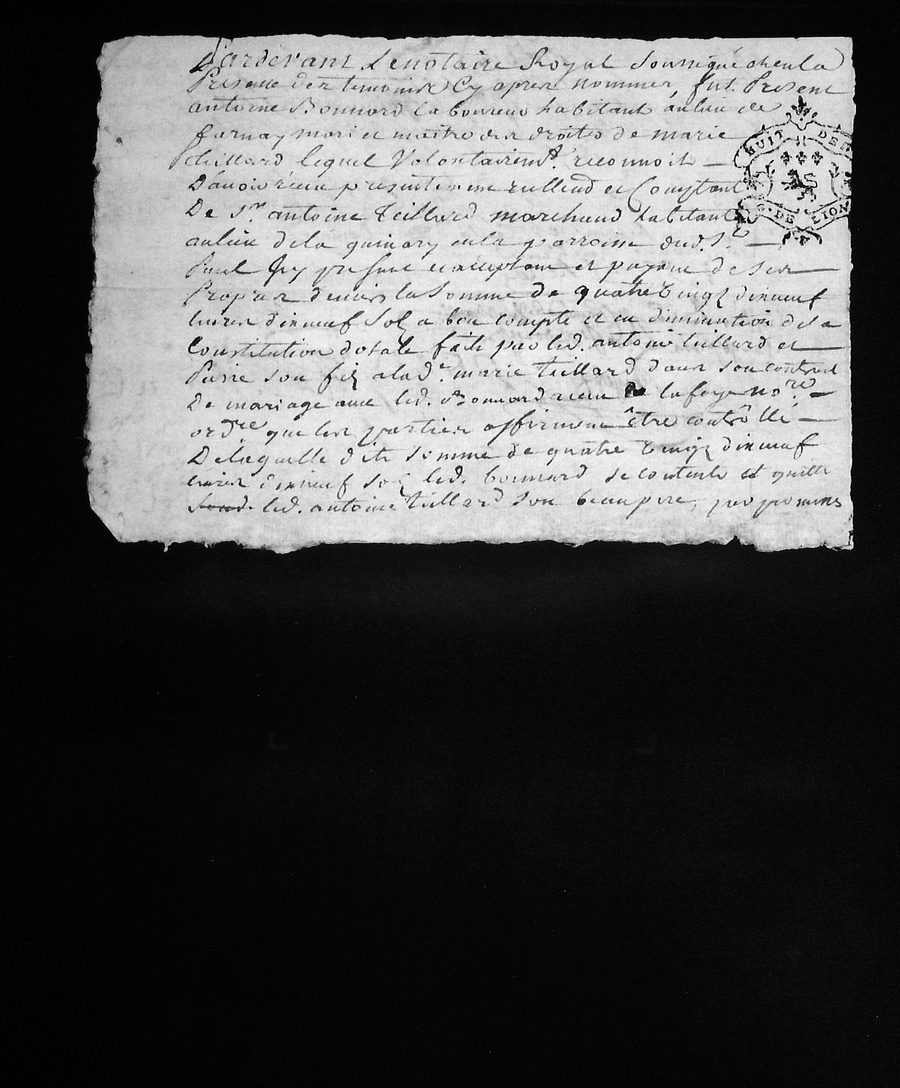 Pardevant Le notaire Royal Soussigné et en la
Presence des temoins Cy apres nommes, fut Present
antoine Bonnard Laboureur habitant au lieu de
farnay mari et maitre des droits de marie
tillard lequel Volontairemt. reconnoit —
D'avoir recu presentement et Comptant
De Sr. antoine teillard marchand habitant
au lieu de la parroisse dud. St. —
Paul Jcy present et acceptant et payant de ses
Propres deniers la Somme de quatre vingt dix neuf
livres dix neuf Sols a bon compte et en diminution de la
Constitution dotale faite par led. antoine teillard et
Pierre son fils a lad. marie teillard dans son contrat
De mariage avec led. Bonnard recu nore. —
que les parties affirment être contrôllé —
De laquelle ditte somme de quatre vingt dix neuf
livres dix neuf Sols led. bonnard se contente et quitte
led. antoine teillard son beau pere, par promes
HUIT DEN
G. DE LION